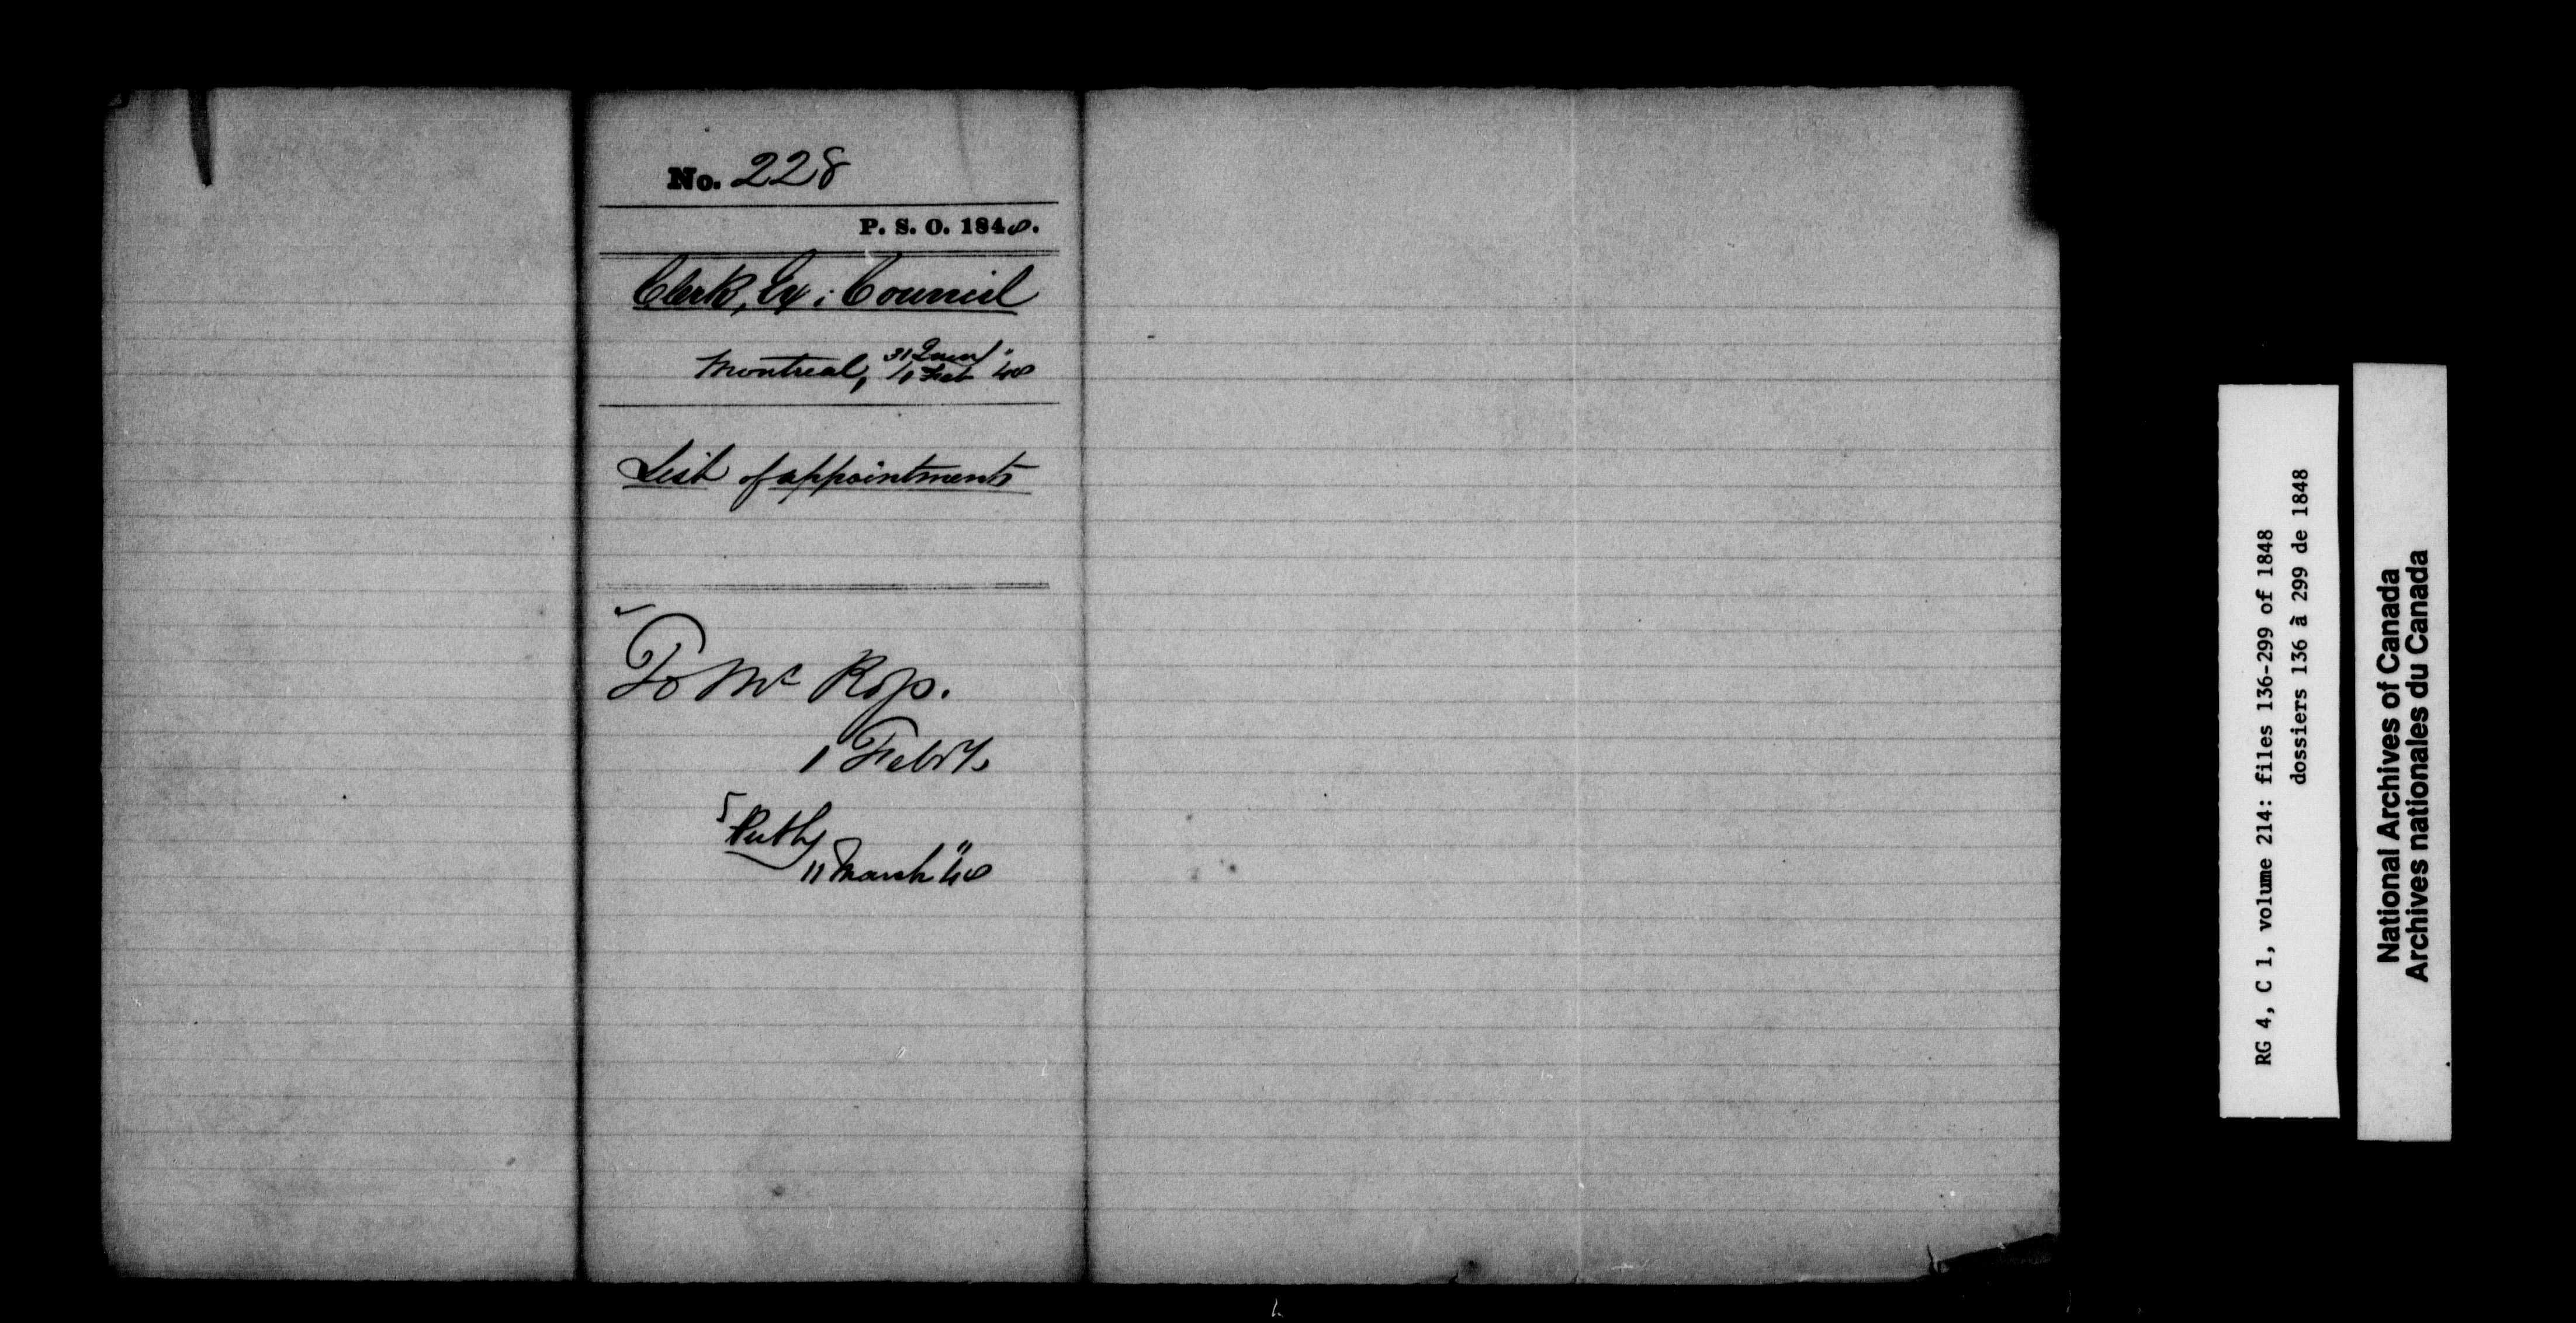 No. 228
P. S. O. 1848.
Clerk, Ex: Council
Montreal, 31 Jany / 1 Feb "48
List of appointments
To Mr Ross.
1 Feby.
11 March "48
RG 4, C 1, volume 214: files 136-299 of 1848
dossiers 136 à 299 de 1848
National Archives of Canada
Archives nationales du Canada